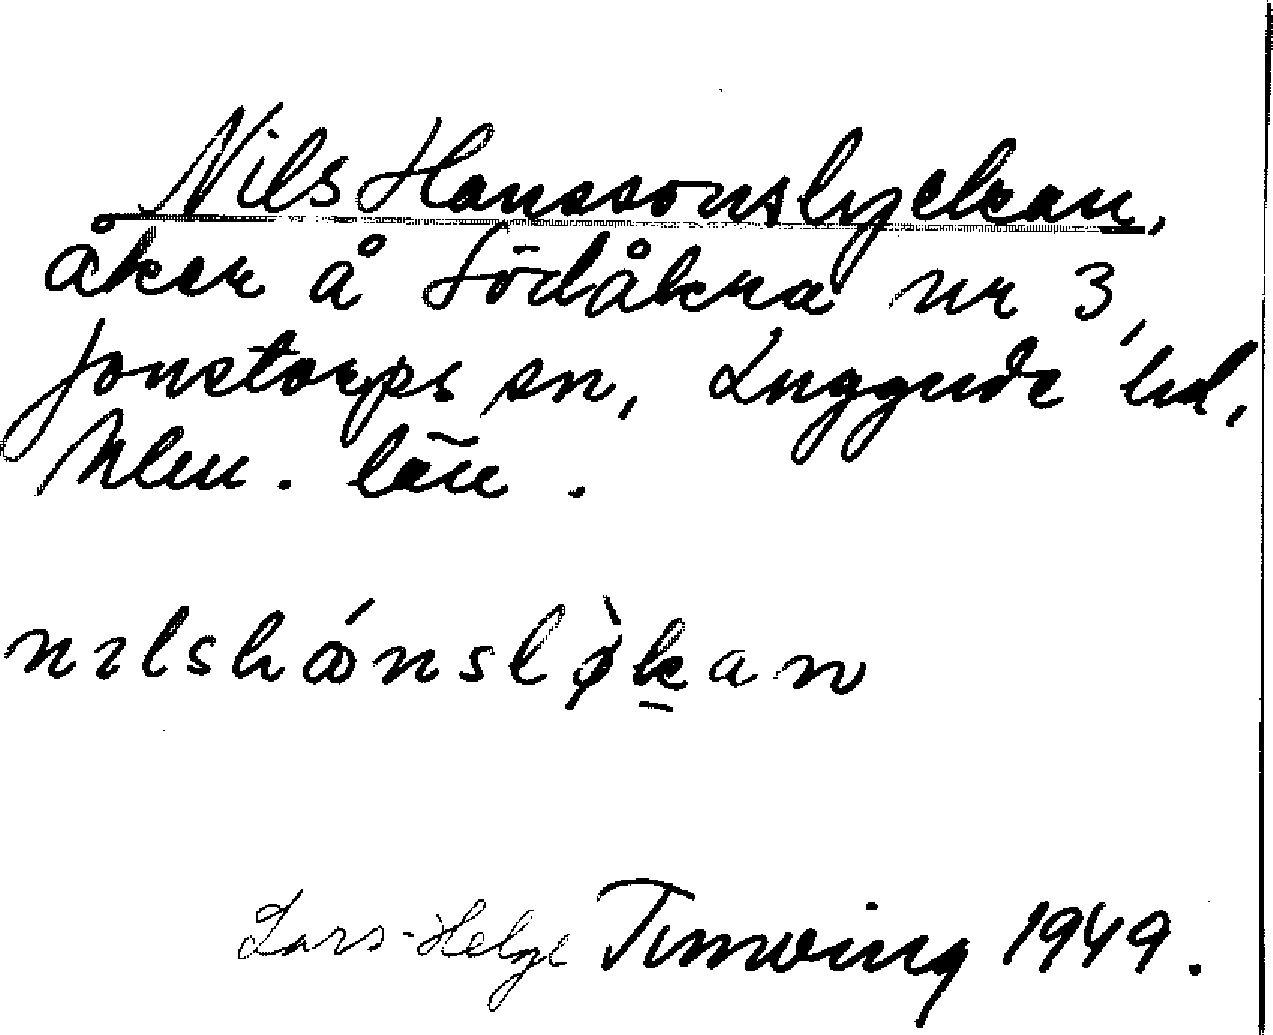 Nils Hanssonslyckan,
åker å Södåkra nr 3,
Jonstorps sn, Luggude hd,
Mlm. län.
nilshånsløkan
Lars-Helge 1949.